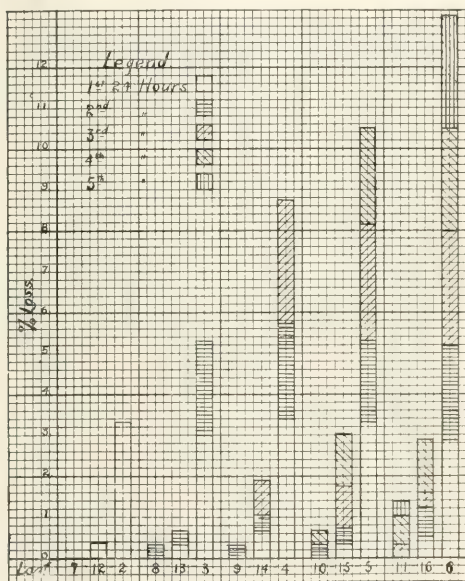 Legend.
1st 24 Hours
2nd "
3rd "
4th "
5th "
12
11
10
9
8
7
6
5
4
3
2
1
0
% Loss.
7 12 2 8 13 3 9 14 4 10 15 5 11 16 6